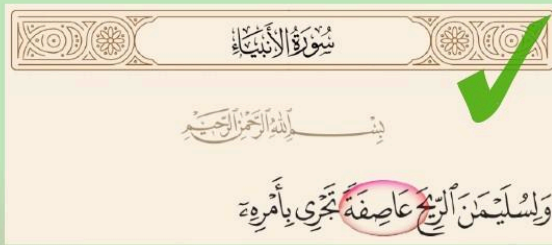 سُورَةُ الأَنْبِيَاءِ
بِسْمِ ٱللَّهِ ٱلرَّحْمَٰنِ ٱلرَّحِيمِ
وَلِسُلَيْمَٰنَ ٱلرِّيحَ عَاصِفَةً تَجْرِى بِأَمْرِهِۦٓ